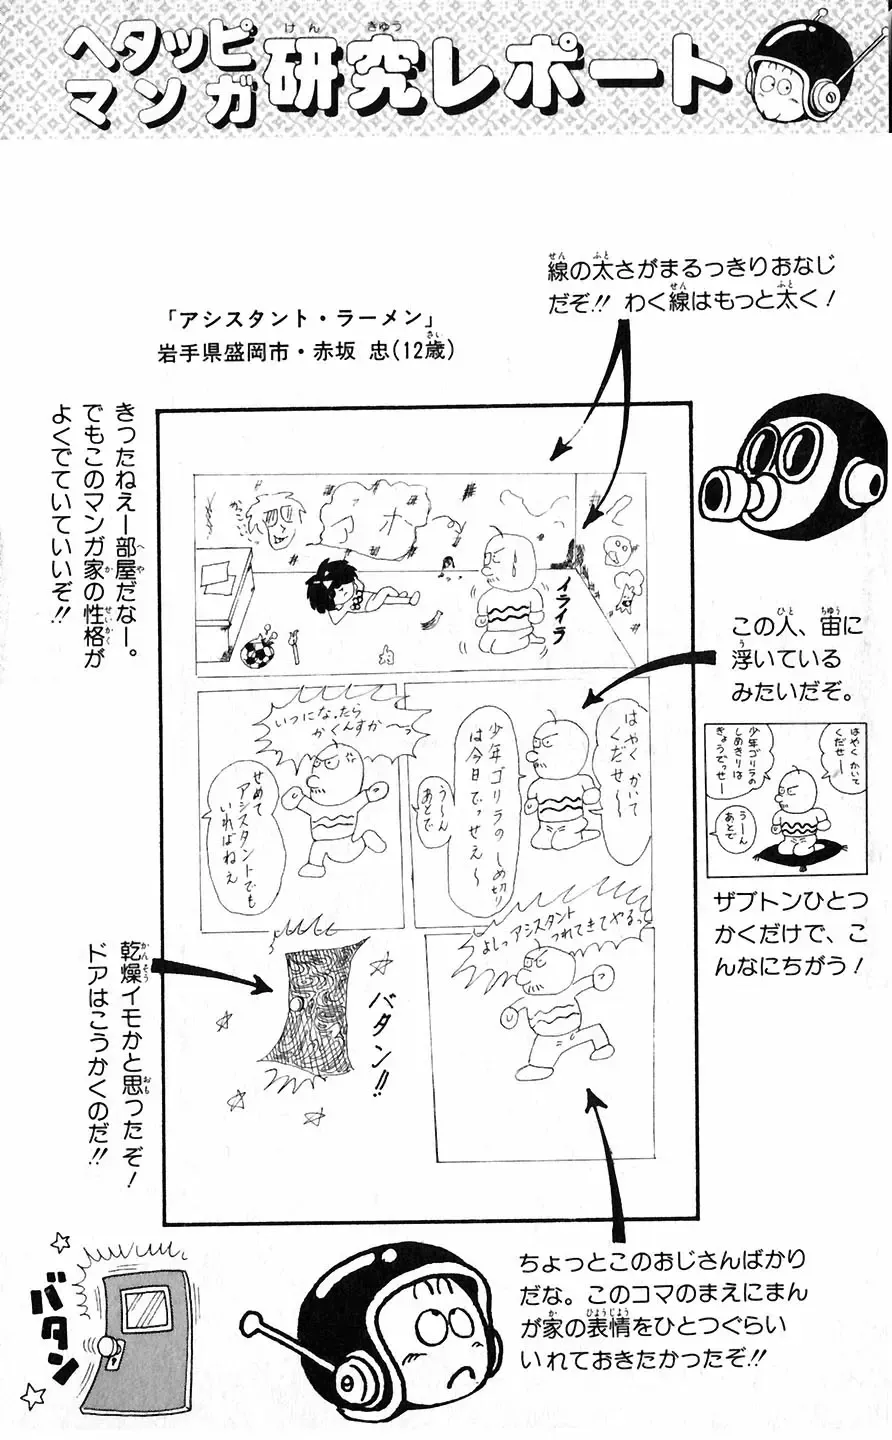 ヘタッピ
マンガ
研究レポート
けん
きゅう
線の太さがまるっきりおなじ
だぞ!! わく線はもっと太く!
せん
ふと
せん
ふと
「アシスタント・ラーメン」
岩手県盛岡市・赤坂 忠(12歳)
さい
きったねえー部屋だなー。
でもこのマンガ家の性格が
よくでていていいぞ!!
へや
か
せいかく
かっこいい
ホ
イライラ
この人、宙に
浮いている
みたいだぞ。
ひと
ちゅう
う
はやくかいて
くだせ〜
少年ゴリラのしめ切り
は今日でっせえ〜
う〜ん
あとで
いつになったら
かくんすか〜っ
せめて
アシスタントでも
いればねえ
はやくかいて
くだせー
少年ゴリラの
しめきりは
きょうでっせー
うーん
あとで
ザブトンひとつ
かくだけで、こ
んなにちがう!
よしっアシスタント
つれてきてやるっ
バタン!!
乾燥イモかと思ったぞ!
ドアはこうかくのだ!!
かんそう
おも
バタン
ちょっとこのおじさんばかり
だな。このコマのまえにまん
が家の表情をひとつぐらい
いれておきたかったぞ!!
か
ひょうじょう